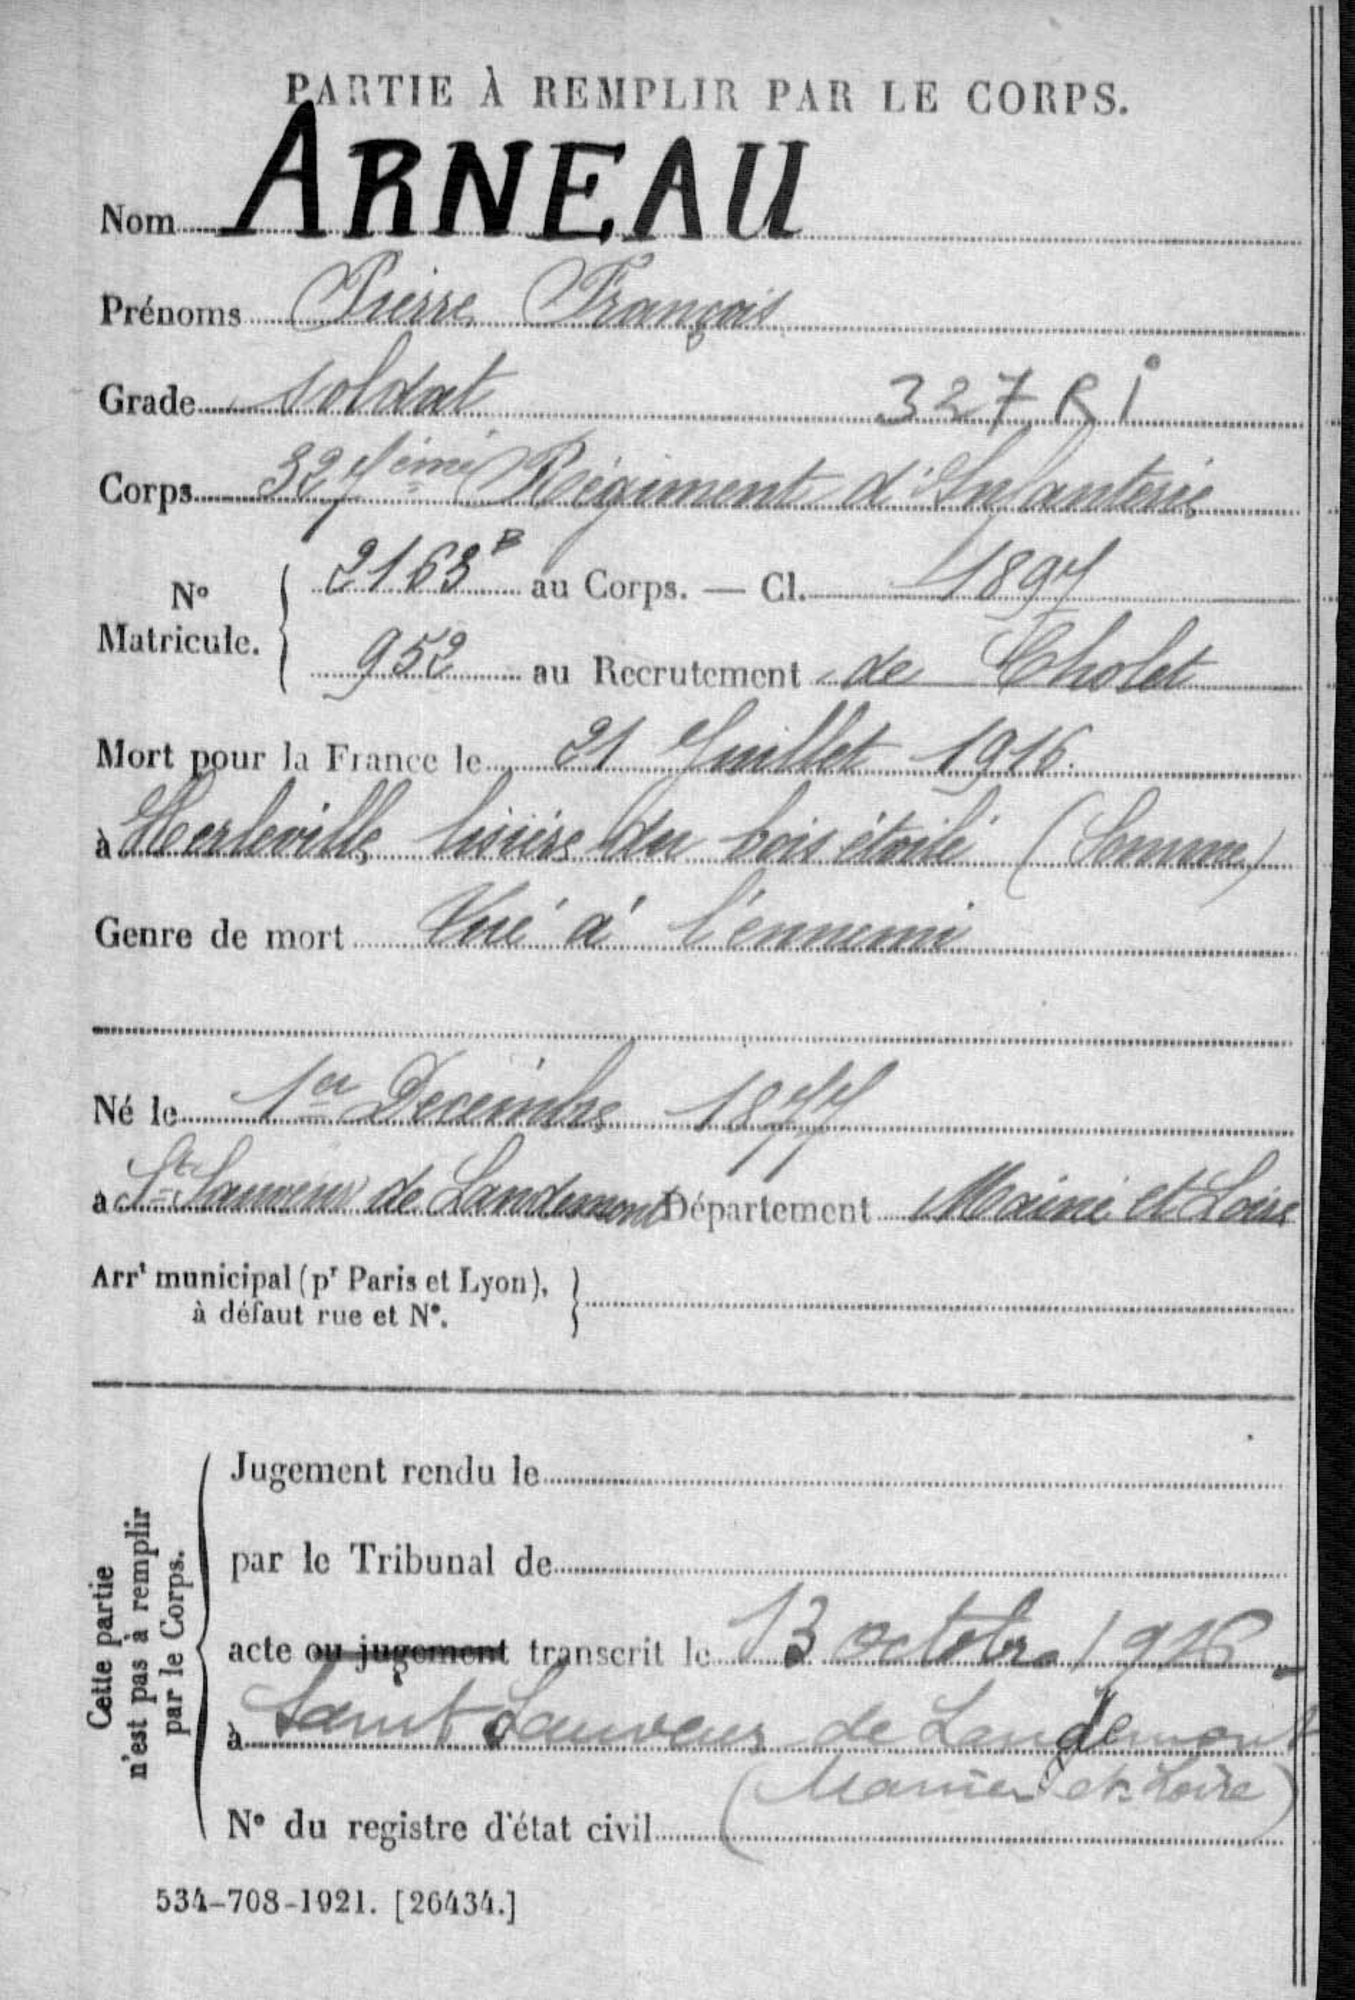 PARTIE À REMPLIR PAR LE CORPS.
Nom ARNEAU
Prénoms Pierre François
Grade soldat 327 RI
Corps 327ème Régiment d'Infanterie
N° Matricule. 2163 B au Corps. — Cl. 1897
952 au Recrutement de Cholet
Mort pour la France le 21 Juillet 1916.
à Herleville lisière du bois étoilé (Somme)
Genre de mort Tué à l'ennemi
Né le 1er Décembre 1877
à St Sauveur de Landemont Département Maine et Loire
Arrt municipal (pr Paris et Lyon),
à défaut rue et N°.
Cette partie
n'est pas à remplir
par le Corps.
Jugement rendu le
par le Tribunal de
acte ou jugement transcrit le 13 octobre 1916
à Saint Sauveur de Landemont
(Maine et Loire)
N° du registre d'état civil
534-708-1921. [26434.]